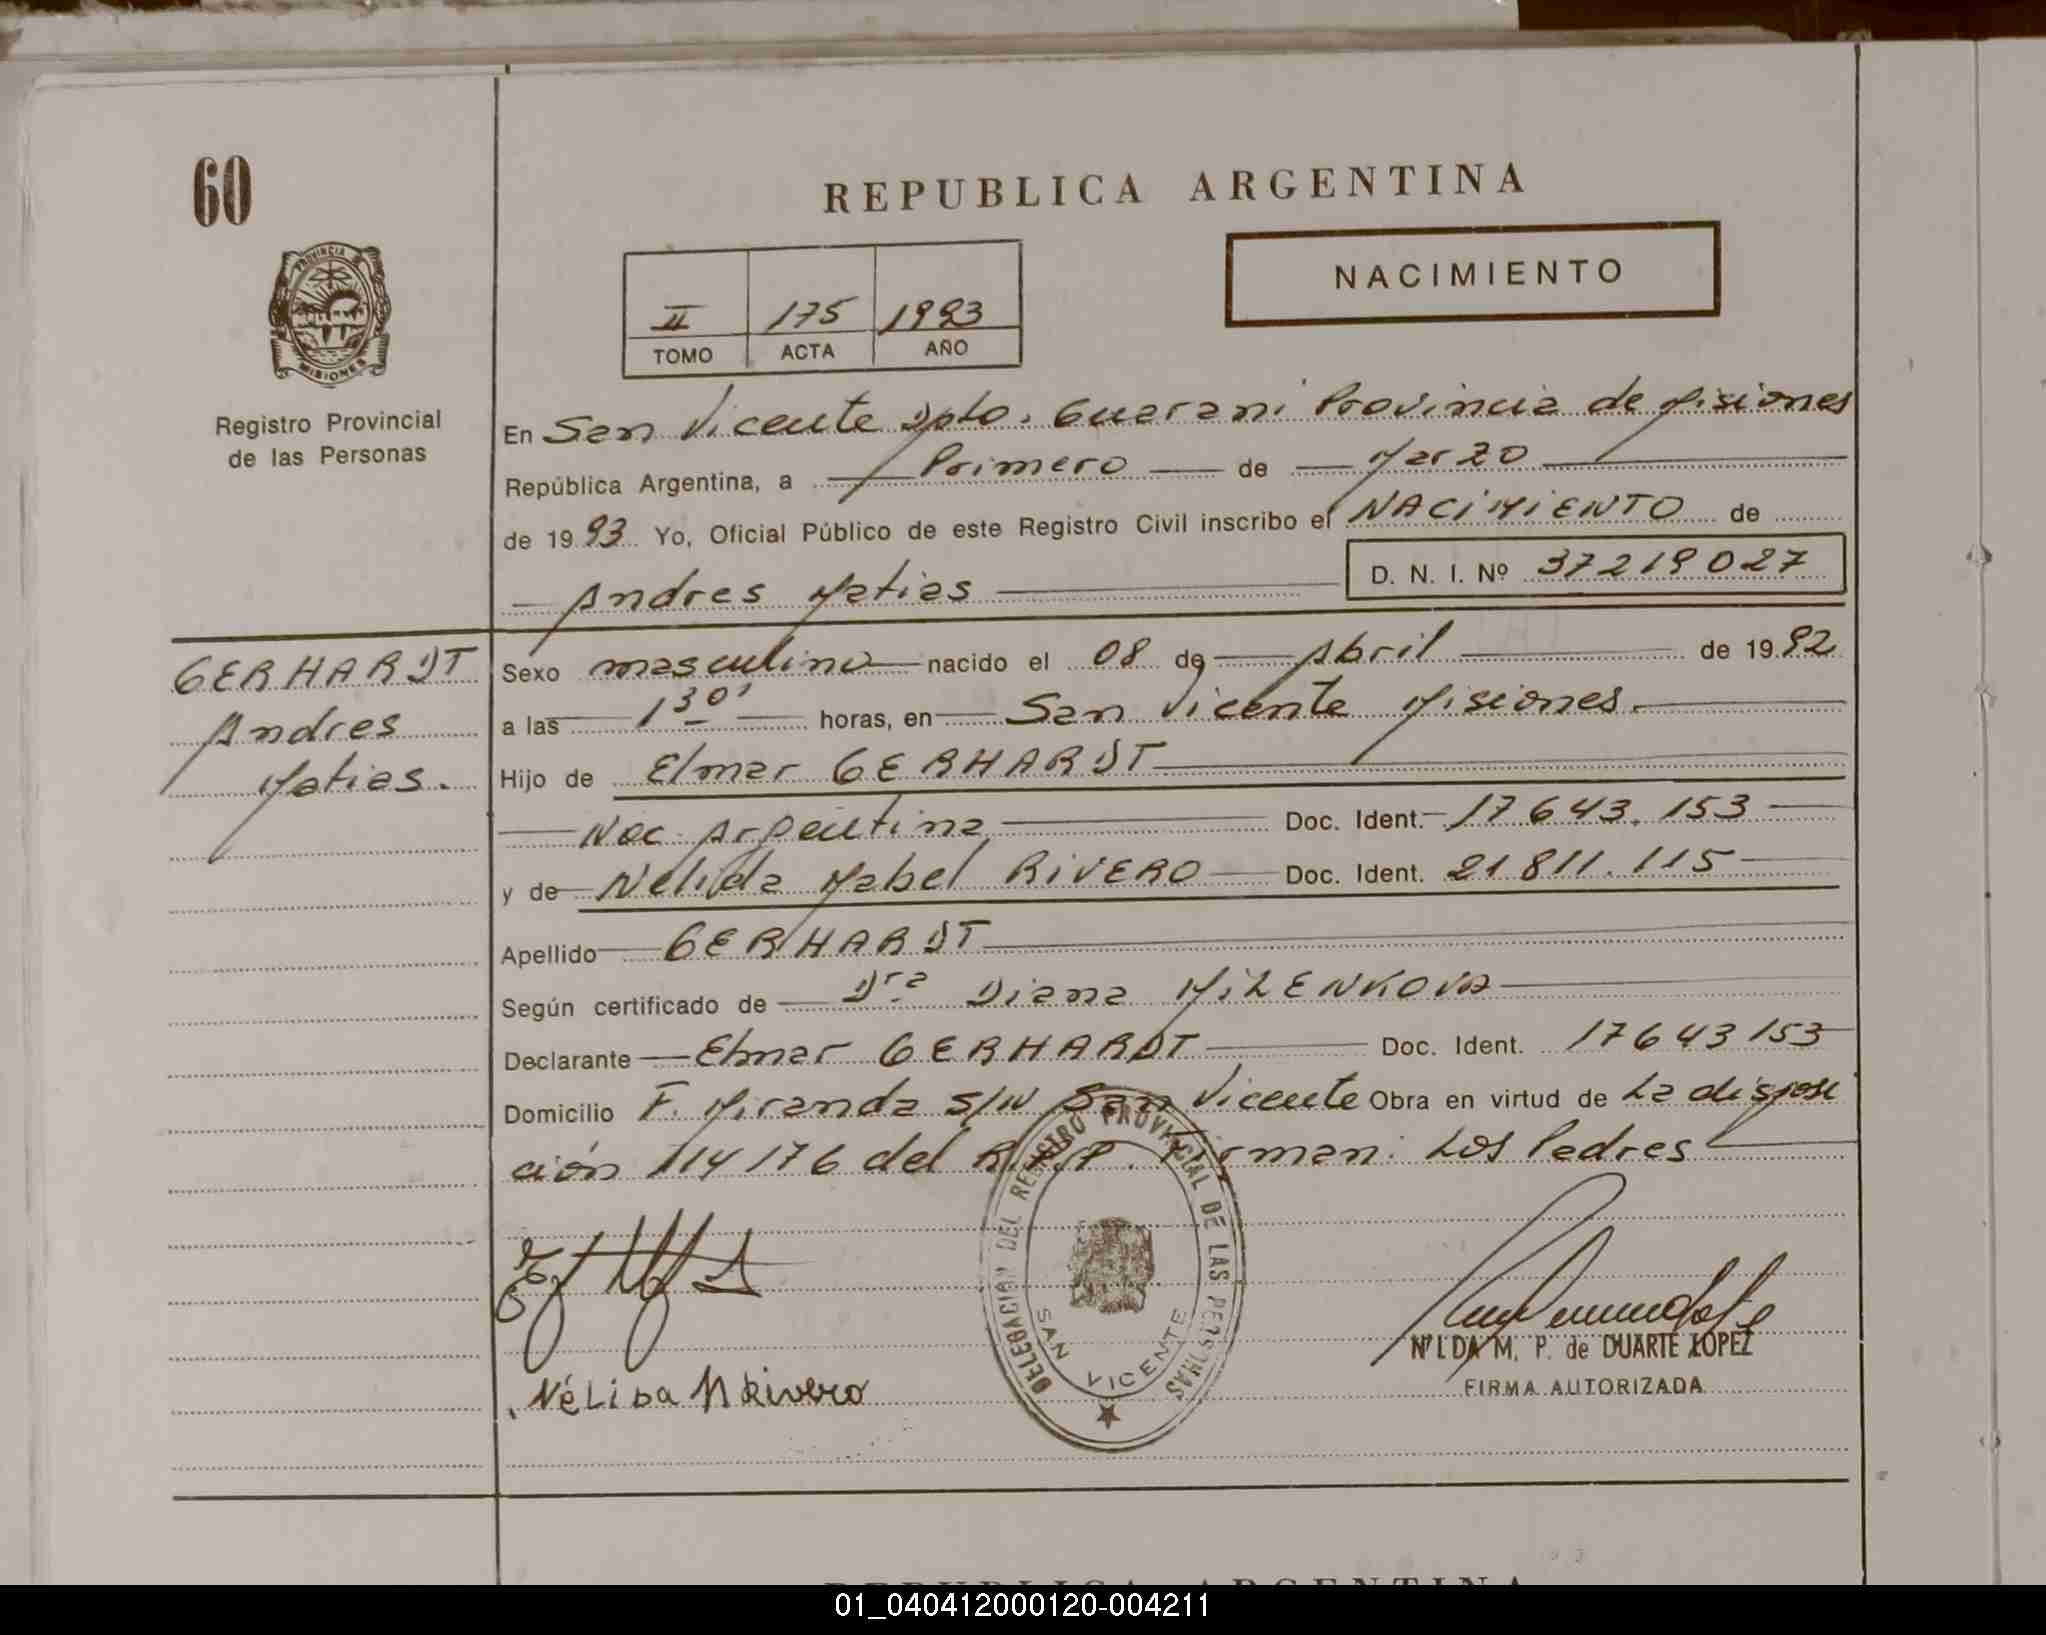 60
REPUBLICA ARGENTINA
NACIMIENTO
II 175 1993
TOMO ACTA AÑO
PROVINCIA DE
MISIONES
Registro Provincial
de las Personas
En San Vicente Dpto. Guarani Provincia de Misiones
República Argentina, a Primero de Marzo
de 1993 Yo, Oficial Público de este Registro Civil inscribo el NACIMIENTO de
Andres Matias D. N. I. Nº 37219027
GERHARDT
Andres
Matias.
Sexo masculino nacido el 08 de Abril de 1992
a las 1 30' horas, en San Vicente Misiones.
Hijo de Elmar GERHARDT
Nac. Argentina Doc. Ident. 17643.153
y de Nelida Mabel RIVERO Doc. Ident. 21811.115
Apellido GERHARDT
Según certificado de Dra Diana MILENKOVA
Declarante Elmar GERHARDT Doc. Ident. 17643153
Domicilio F. Miranda S/N San Vicente Obra en virtud de La disposi
ción 114176 del R.P.P. Firman: Los Padres
DELEGACION DEL REGISTRO PROVINCIAL DE LAS PERSONAS
SAN VICENTE
NéLiDa M Rivero
NILDA M. P. de DUARTE LOPEZ
FIRMA AUTORIZADA
REPUBLICA ARGENTINA
01_040412000120-004211